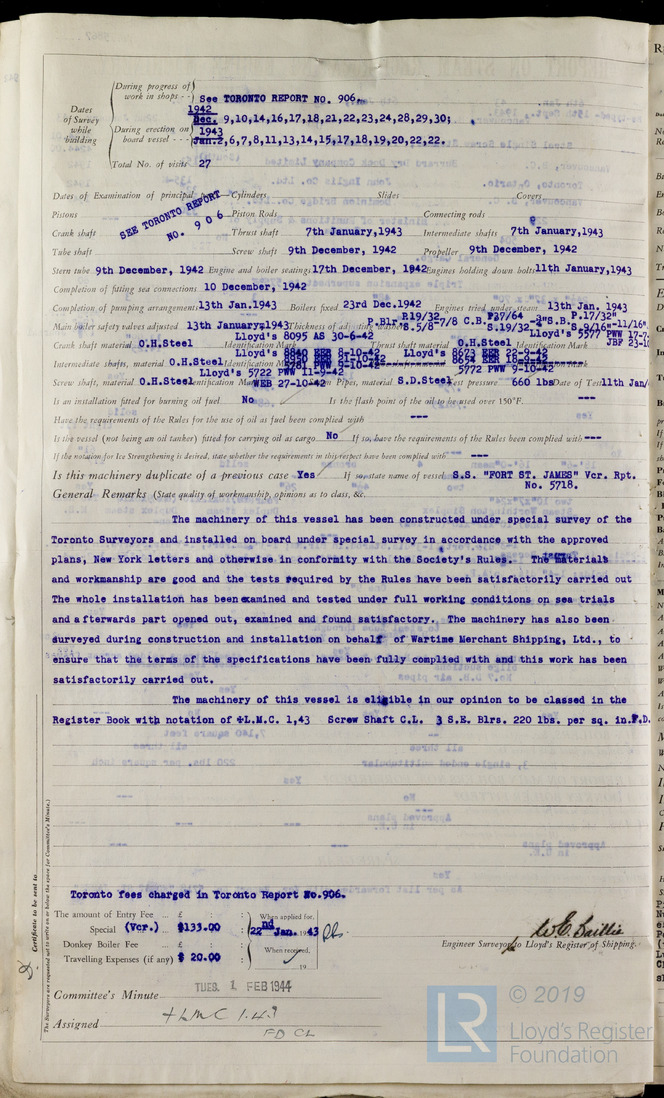 During progress of work in shops - - See TORONTO REPORT NO. 906.
1942
Dates of Survey while building
During erection on board vessel - - - Dec. 9,10,14,16,17,18,21,22,23,24,28,29,30;
1943
Jan.2,6,7,8,11,13,14,15,17,18,19,20,22,22.
Total No. of visits 27
Dates of Examination of principal parts—Cylinders Slides Covers
SEE TORONTO REPORT NO. 906
Pistons Piston Rods Connecting rods
Crank shaft Thrust shaft 7th January,1943 Intermediate shafts 7th January,1943
Tube shaft Screw shaft 9th December, 1942 Propeller 9th December, 1942
Stern tube 9th December, 1942 Engine and boiler seatings 17th December, 1942 Engines holding down bolts 11th January,1943
Completion of fitting sea connections 10 December, 1942
Completion of pumping arrangements 13th Jan.1943 Boilers fixed 23rd Dec.1942 Engines tried under steam 13th Jan. 1943
Main boiler safety valves adjusted 13th January,1943 Thickness of adjusting washers
Crank shaft material O.H.Steel Identification Mark Lloyd's 8095 AS 30-6-42 Thrust shaft material O.H.Steel Identification Mark Lloyd's 5577 PWW
Intermediate shafts, material O.H.Steel Identification Marks
Lloyd's 8673 EER 22-9-42
5772 PWW 9-10-42
Lloyd's 5722 PWW 11-9-42
Screw shaft, material O.H.Steel Identification Mark WEB 27-10-42 Steam Pipes, material S.D.Steel Test pressure 660 lbs Date of Test 11th Jan/
Is an installation fitted for burning oil fuel No Is the flash point of the oil to be used over 150°F. ---
Have the requirements of the Rules for the use of oil as fuel been complied with ---
Is the vessel (not being an oil tanker) fitted for carrying oil as cargo No If so, have the requirements of the Rules been complied with ---
If the notation for Ice Strengthening is desired, state whether the requirements in this respect have been complied with ---
Is this machinery duplicate of a previous case Yes If so, state name of vessel S.S. "FORT ST. JAMES" Vcr. Rpt. No. 5718.
General Remarks (State quality of workmanship, opinions as to class, &c.
The machinery of this vessel has been constructed under special survey of the
Toronto Surveyors and installed on board under special survey in accordance with the approved
plans, New York letters and otherwise in conformity with the Society's Rules. The materials
and workmanship are good and the tests required by the Rules have been satisfactorily carried out
The whole installation has been examined and tested under full working conditions on sea trials
and afterwards part opened out, examined and found satisfactory. The machinery has also been
surveyed during construction and installation on behalf of Wartime Merchant Shipping, Ltd., to
ensure that the terms of the specifications have been fully complied with and this work has been
satisfactorily carried out.
The machinery of this vessel is eligible in our opinion to be classed in the
Register Book with notation of +L.M.C. 1,43 Screw Shaft C.L. 3 S.E. Blrs. 220 lbs. per sq. in.F.D.
Certificate to be sent to
(The Surveyors are requested not to write on or below the space for Committee's Minute.)
Toronto fees charged in Toronto Report No.906.
The amount of Entry Fee ... £ : : When applied for,
Special (Vcr.) $133.00 22nd Jan. 1943
Donkey Boiler Fee ... £ : : When received,
Travelling Expenses (if any) $ 20.00 19
W.E. Baillie
Engineer Surveyor to Lloyd's Register of Shipping.
Committee's Minute TUES. 1 FEB 1944
Assigned + LMC 1.43
FD CL
LR
© 2019
Lloyd's Register
Foundation